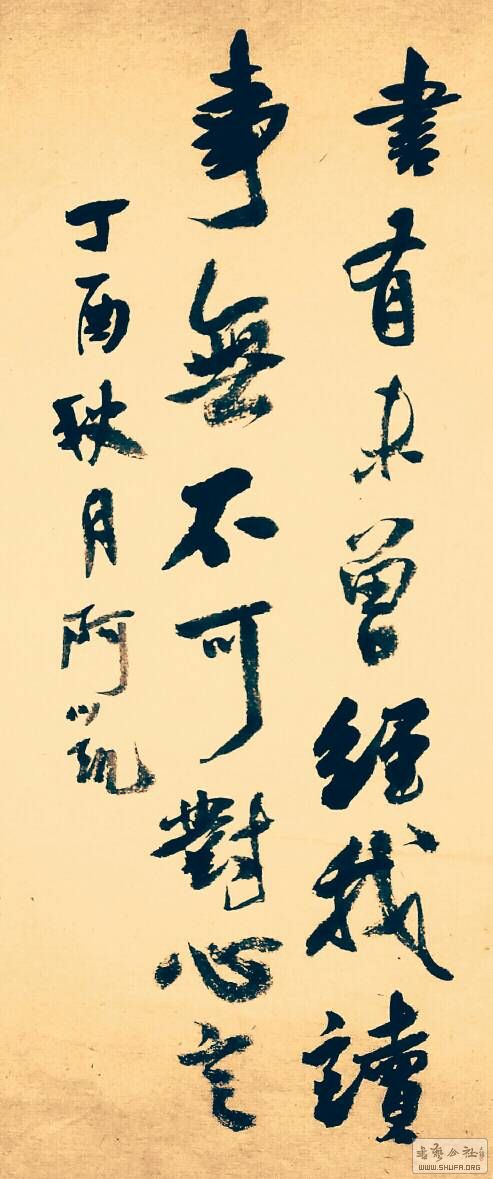 書有未曾經我讀
事無不可對心言
丁酉秋月阿凱
書艺公社
WWW.SHUFA.ORG